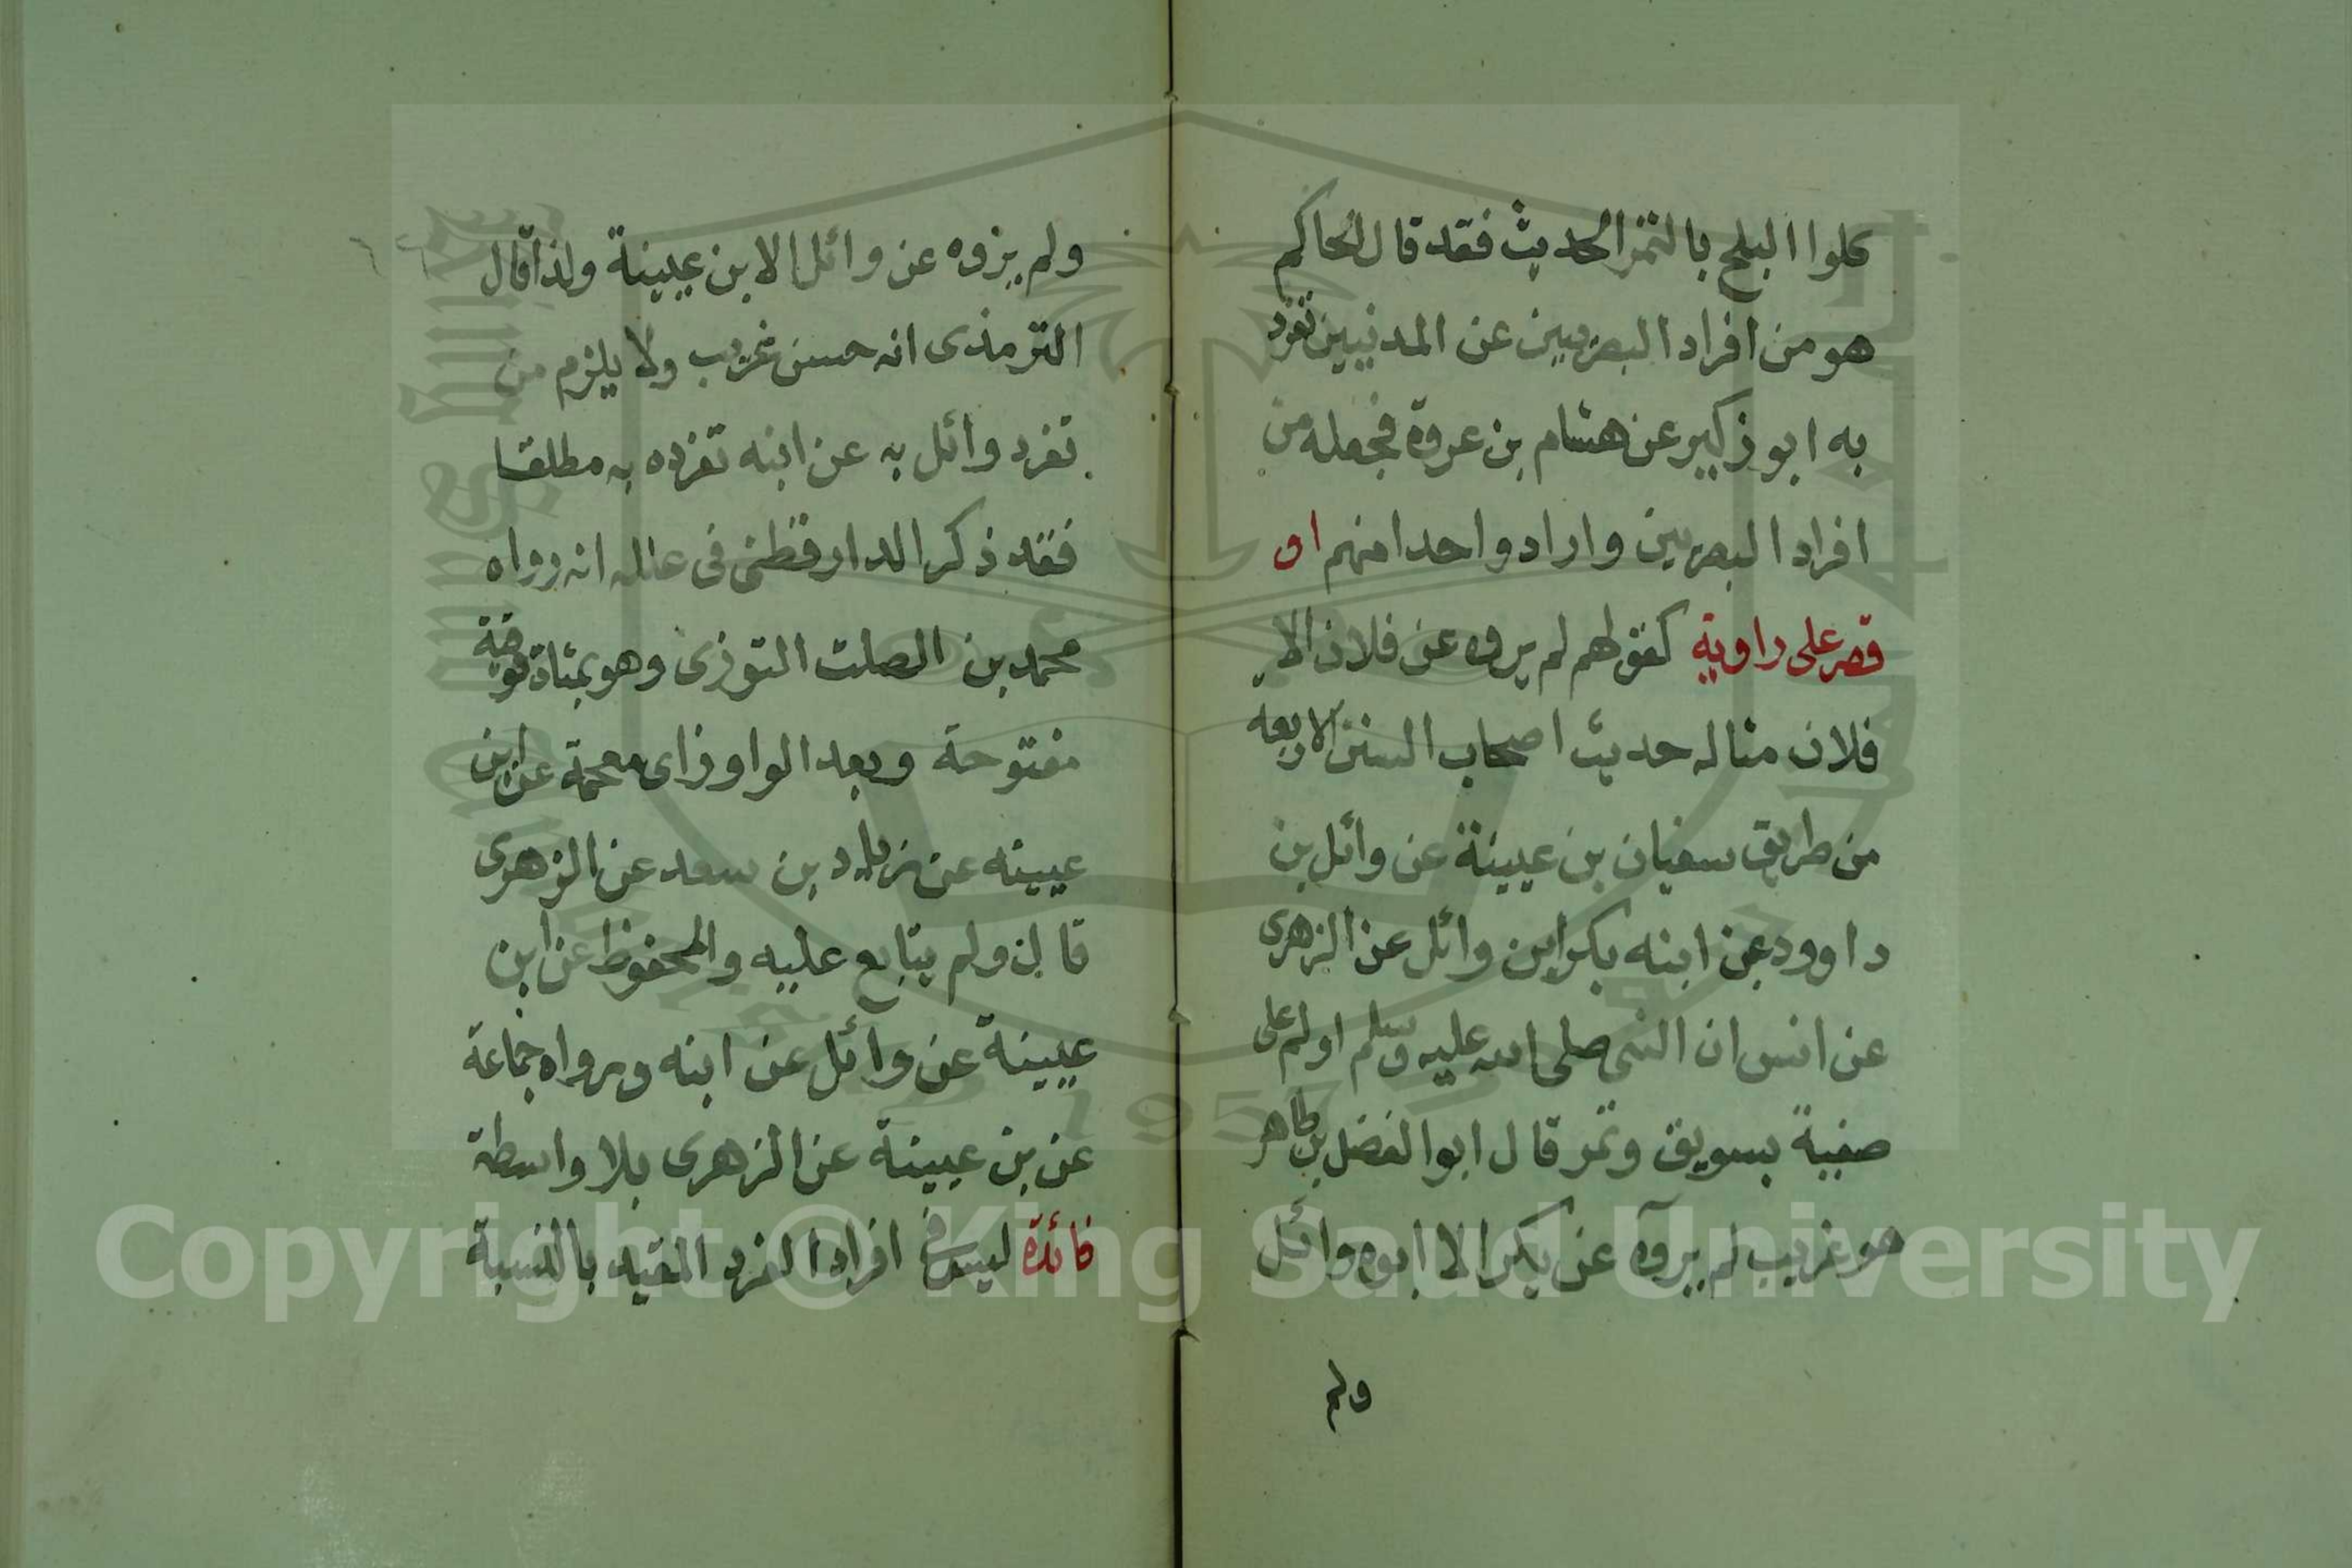 كلوا البلح بالتمر الحديث فقد قال الحاكم
هو من افراد البصريين عن المدنيين تفرد
به ابو زكير عن هشام بن عروة فجعله من
افراد البصريين واراد واحدا منهم او
قصر على راوية كقولهم لم يروه عن فلان الا
فلان مثاله حديث اصحاب السنن الاربعه
من طريق سفيان بن عيينة عن وائل بن
داوود عن ابنه بكر ابن وائل عن الزهرى
عن انس ان النبى صلى الله عليه وسلم اولم على
صفية بسويق وتمر قال ابو الفضل بن طاهر
هو غريب لم يروه عن بكر الا ابوه وائل
ولم
ولم يروه عن وائل الا بن عيينة ولذا قال
الترمذى انه حسن غريب ولا يلزم من
تفرد وائل به عن ابنه تفرده به مطلقا
فقد ذكر الدارقطنى فى علله انه رواه
محمد بن الصلت التوزى وهو بمثناة فوقية
مفتوحة وبعد الواو زاى معجمة عن ابن
عيينه عن زياد بن سعد عن الزهرى
قال ولم يتابع عليه والمحفوظ عن ابن
عيينة عن وائل عن ابنه ورواه جماعة
عن بن عيينة عن الزهرى بلا واسطة
فائدة ليس فى افراد الفرد المقيد بالنسبة
Copyright © King Saud University
1957